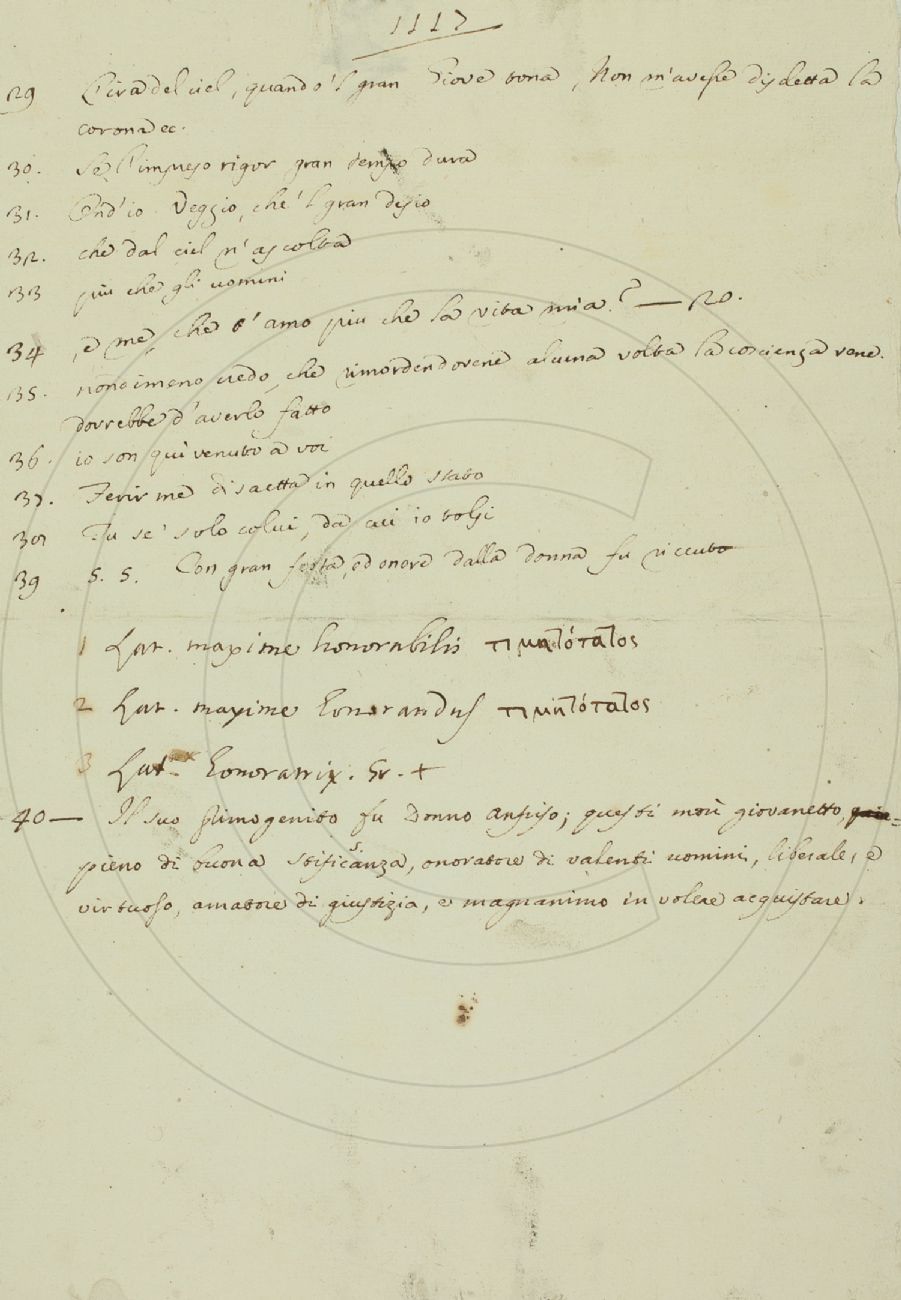 1117
29 L'ira del ciel, quando 'l gran Giove tona, Non m'avesse disdetta la
corona ec.
30. Se l'impreso rigor gran tempo dura
31. Ond'io veggio, che 'l gran disio
32. che dal ciel n'ascolta
33 più che gli uomini
34 , e me, che t'amo più che la vita mia? — 20.
35. nondimeno credo, che rimordendovene alcuna volta la coscienza vene.
dorrebbe d'averlo fatto
36. io son quì venuto a voi
37. Ferir me di saetta in quello stato
38 Tu se' solo colui, da cui io tolsi
39 S. S. Con gran festa, ed onore dalla donna fu riceuto
1 Lat. maxime honorabilis τιμητότατος
2 Lat. maxime honorandus τιμητότατος
3 Lat. honoratrix. Gr. +
40 — Il suo primogenito fu Donno Anfuso; questi morì giovanetto,
pieno di buona stificanza, onoratore di valenti uomini, liberale, e
virtuoso, amatore di giustizia, e magnanimo in volere acquistare.